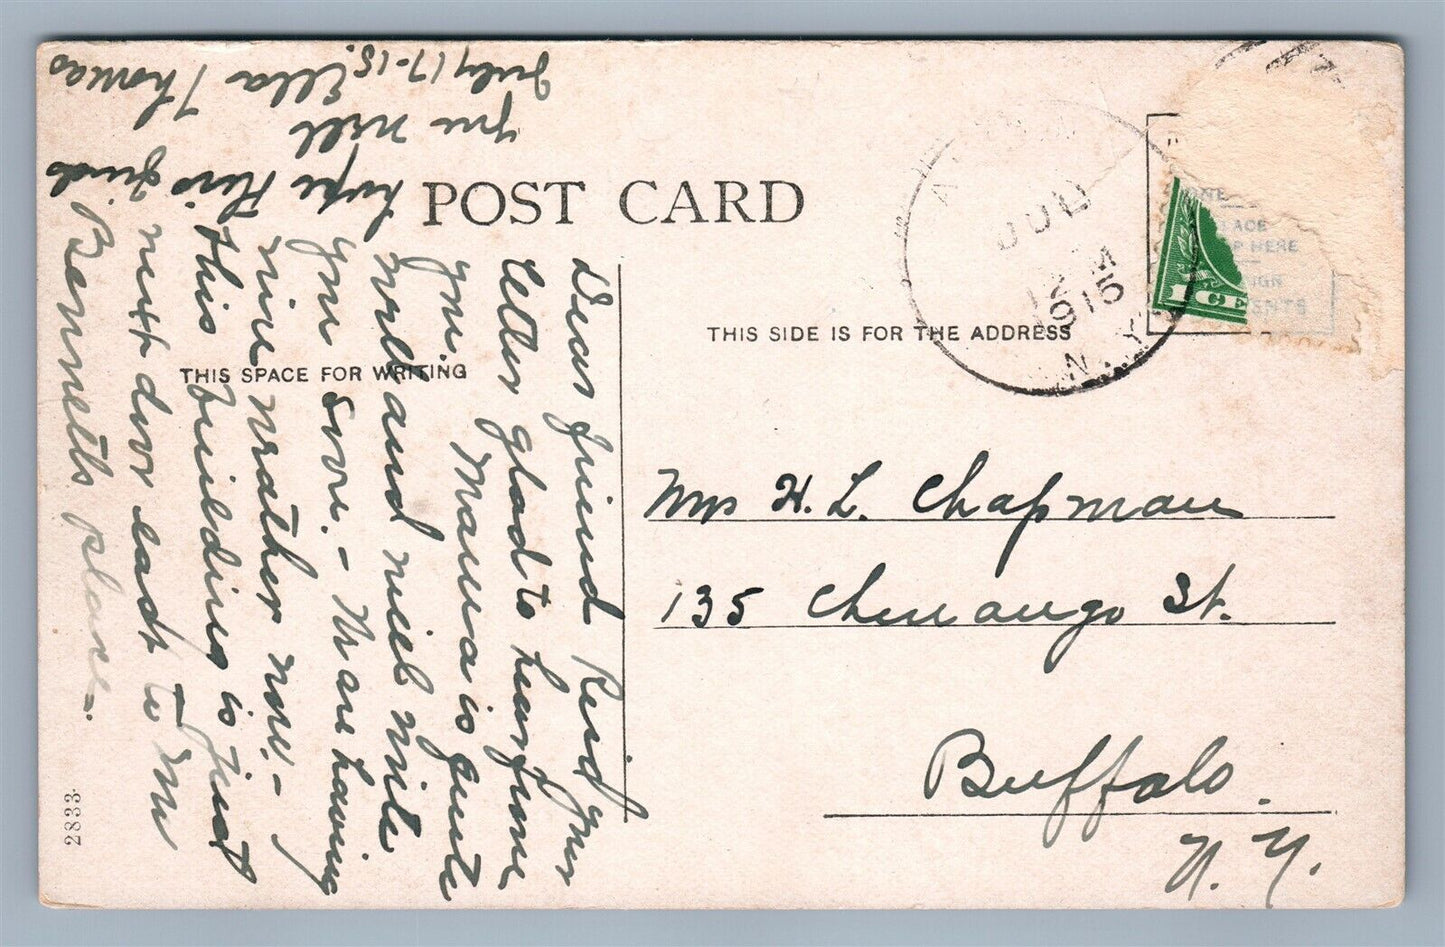 POST CARD
THIS SPACE FOR WRITING
THIS SIDE IS FOR THE ADDRESS
Dear friend Reid your
letter glad to hear from
you. Mama is quite
well and will write
you soon. - We are having
nice weather now. -
This building is just
next door east to Mr
Bennetts place -.
hope this finds
you well
Ella Thomas
July 17-15.
Mrs H. L. Chapman
135 Chenango St.
Buffalo.
N. Y.
JUL
12 M
1915
N.Y.
ONE
PLACE
HERE
1 CE
2833